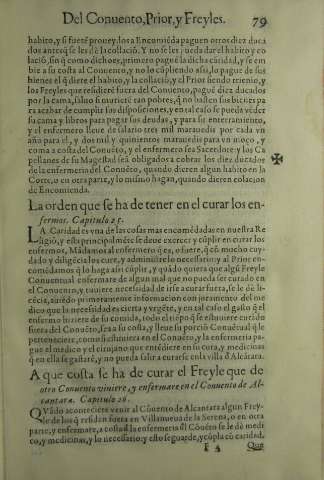 Del Conuento, Prior, y Freyles. 79
habito, y si fuerē prouey. los a Encomiēda paguen otros diez duca
dos antes q̄ se les de la collaciō. Y no se les pueda dar el habito y co
laciō, sin q̄ como dicho es, primero pague la dicha cāridad, y se em
bie a su costa al Conuento, y no lo cūpliendo assi, lo pague de sus
bienes el q̄ diere el habito, y la collaciō, y el Prior siendo trienio, y
los Freyles que residierē fuera del Conuento, paguē diez ducados
por la cama, saluo si murierē tan pobres, q̄ no basten sus bienes pa
ra acabar de cumplir sus disposiciones, y en tal caso se pueda vēder
su cama y libros para pagar sus deudas, y para su enterramiento,
y el enfermero lleue de salario tres mil marauedis por cada vn
año para el, y dos mil y quinientos marauedis para vn moço, y
coma a costa del Conuēto, y el enfermero sea Sacerdote: y los Ca
pellanes de su Magestad seā obligados a cobrar los diez ducados
de la enfermeria del Conuēto, quando dieren algun habito en la
Corte, o en otra parte, y lo mismo hagan, quando dieren colacion
de Encomienda.
La orden que se ha de tener en el curar los en-
fermos. Capitulo 25.
LA Caridad es vna de las cosas mas encomēdadas en nuestra Re
ligiō, y esta principalmēte se deue exercer y cūplir en curar los
enfermos, Mādamos al enfermero q̄ es, o fuere, q̄ cō mucho cuy-
dado y diligēcia los cure, y administre lo necessario: y al Prior en-
comēdamos q̄ lo haga assi cūplir, y quādo quiera que algū Freyle
Conuentual enfermare de algun mal que no pueda ser curado en
el Conuento, y tuuiere necessidad de irse a curar fuera, se le de li-
cēcia, auiēdo primeramente informacion con juramento del me
dico que la necessidad es cierta y vrgēte, y en tal caso el gasto q̄ el
enfermo hiziere de su comida, todo el tiēpo q̄ se estuuiere curādo
fuera del Conuēto, sea a su costa, y lleue su porciō Conuētual q̄ le
perteneciere, como si estuuiera en el Conuēto, y la enfermeria pa-
gue el medico y el cirujano que entēdiere en su cura, y medicinas
q̄ en ella se gastarē, y no pueda salir a curarse en la villa d̄ Alcātara.
A que costa se ha de curar el Freyle que de
otro Conuento viniere, y enfermare en el Conuento de Al-
cantara. Capitulo 26.
QVādo aconteciere venir al Cōuento de Alcantara algun Frey-
le de los q̄ residen fuera en Villanueua de la Serena, o en otra
parte, y enfermare, a costa d̄ la enfermeria d̄l Cōuēto se le dē medi
co, y medicinas, y lo necessario: y esto se guarde, y cūpla cō caridad,
F 4 Que